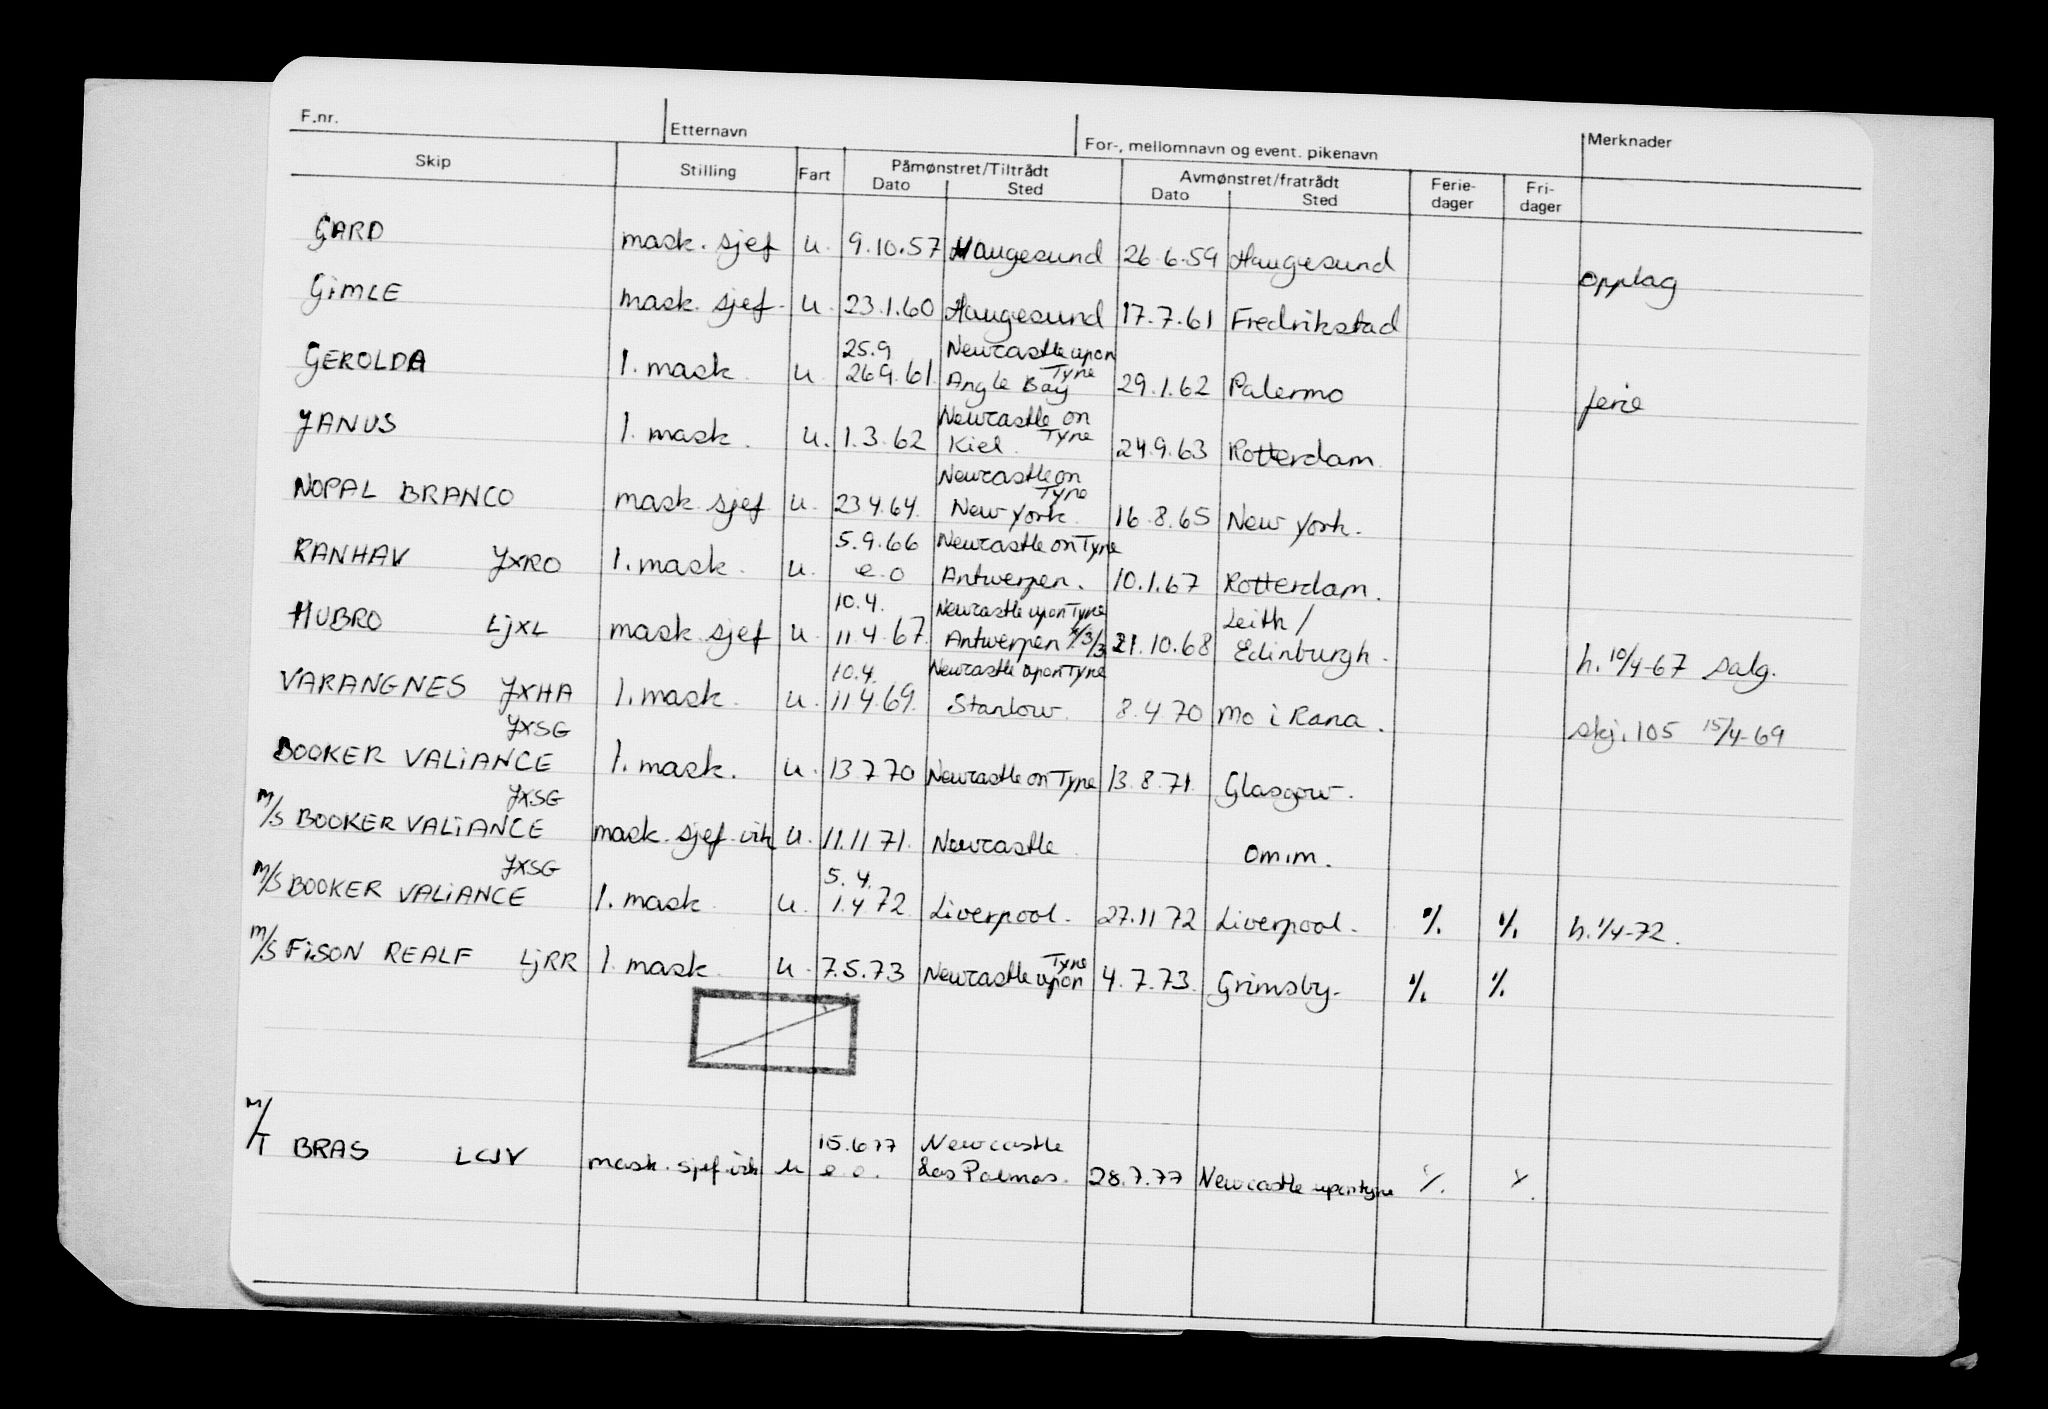 F.nr. Etternavn For-, mellomnavn og event. pikenavn Merknader
Skip Stilling Fart Påmønstret/Tiltrådt Avmønstret/fratrådt Ferie- Fri-
Dato Sted Dato Sted dager dager
GARD mask. sjef u. 9.10.57 Haugesund 26.6.59 Haugesund opplag
GiMLE mask. sjef. u. 23.1.60 Haugesund 17.7.61 Fredrikstad
25.9 Newcastle upon Tyne
GEROLDA 1. mask. u. 26.9.61. Angle Bay 29.1.62 Palermo ferie
Newcastle on Tyne
JANUS 1. mask. u. 1.3.62 Kiel. 24.9.63 Rotterdam.
Newcastle on Tyne
NOPAL BRANCO mask. sjef u. 23.4.64. New York. 16.8.65 New York.
5.9.66 Newcastle on Tyne
RANHAV JXRO 1. mask. u. e.o Antwerpen. 10.1.67 Rotterdam.
10.4. Newcastle upon Tyne Leith/
HUBRO LjXL mask. sjef u. 11.4.67. Antwerpen 21.10.68 Edinburgh. h. 10/4-67 salg.
10.4. Newcastle upon Tyne
VARANGNES JXHA 1. mask. u. 11.4.69. Stanlow. 8.4.70 Mo i Rana. skj. 105 15/4-69
JXSG
BOOKER VALiANCE 1. mask. u. 13.7.70 Newcastle on Tyne 13.8.71. Glasgow.
JXSG
M/S BOOKER VALiANCE mask. sjef. vik u. 11.11.71. Newcastle. omm.
JXSG 5.4.
M/S BOOKER VALiANCE 1. mask. u. 1.4.72. Liverpool. 27.11.72 Liverpool. % % h. 1/4-72.
M/S FiSON REALF LjRR 1. mask. u. 7.5.73 Newcastle upon Tyne 4.7.73. Grimsby. % %
15.6.77 Newcastle
M/T BRAS LCJV mask. sjef. vik u e.o. Las Palmas. 28.7.77 Newcastle upon tyne % %